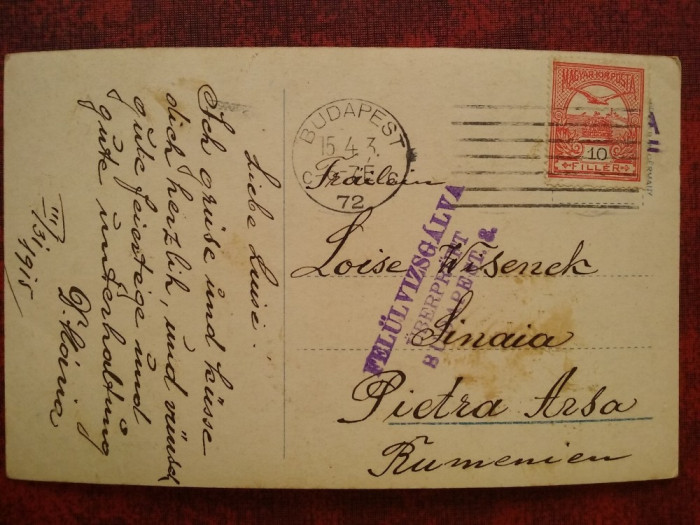 Liebe Luise!
Ich grüse und küsse
dich herzlich, und wünsch
gute feiertege und
gute underhaltung
D. Mária
III/31
1915
BUDAPEST
15 4 3
72
MAGYAR KIR. POSTA
10
FILLER
FELÜLVIZSGÁLVA
ÜBERPRÜFT
BUDAPEST. 8.
Fräulein
Loise Wisenek
Sinaia
Pietra Arsa
Rumenien